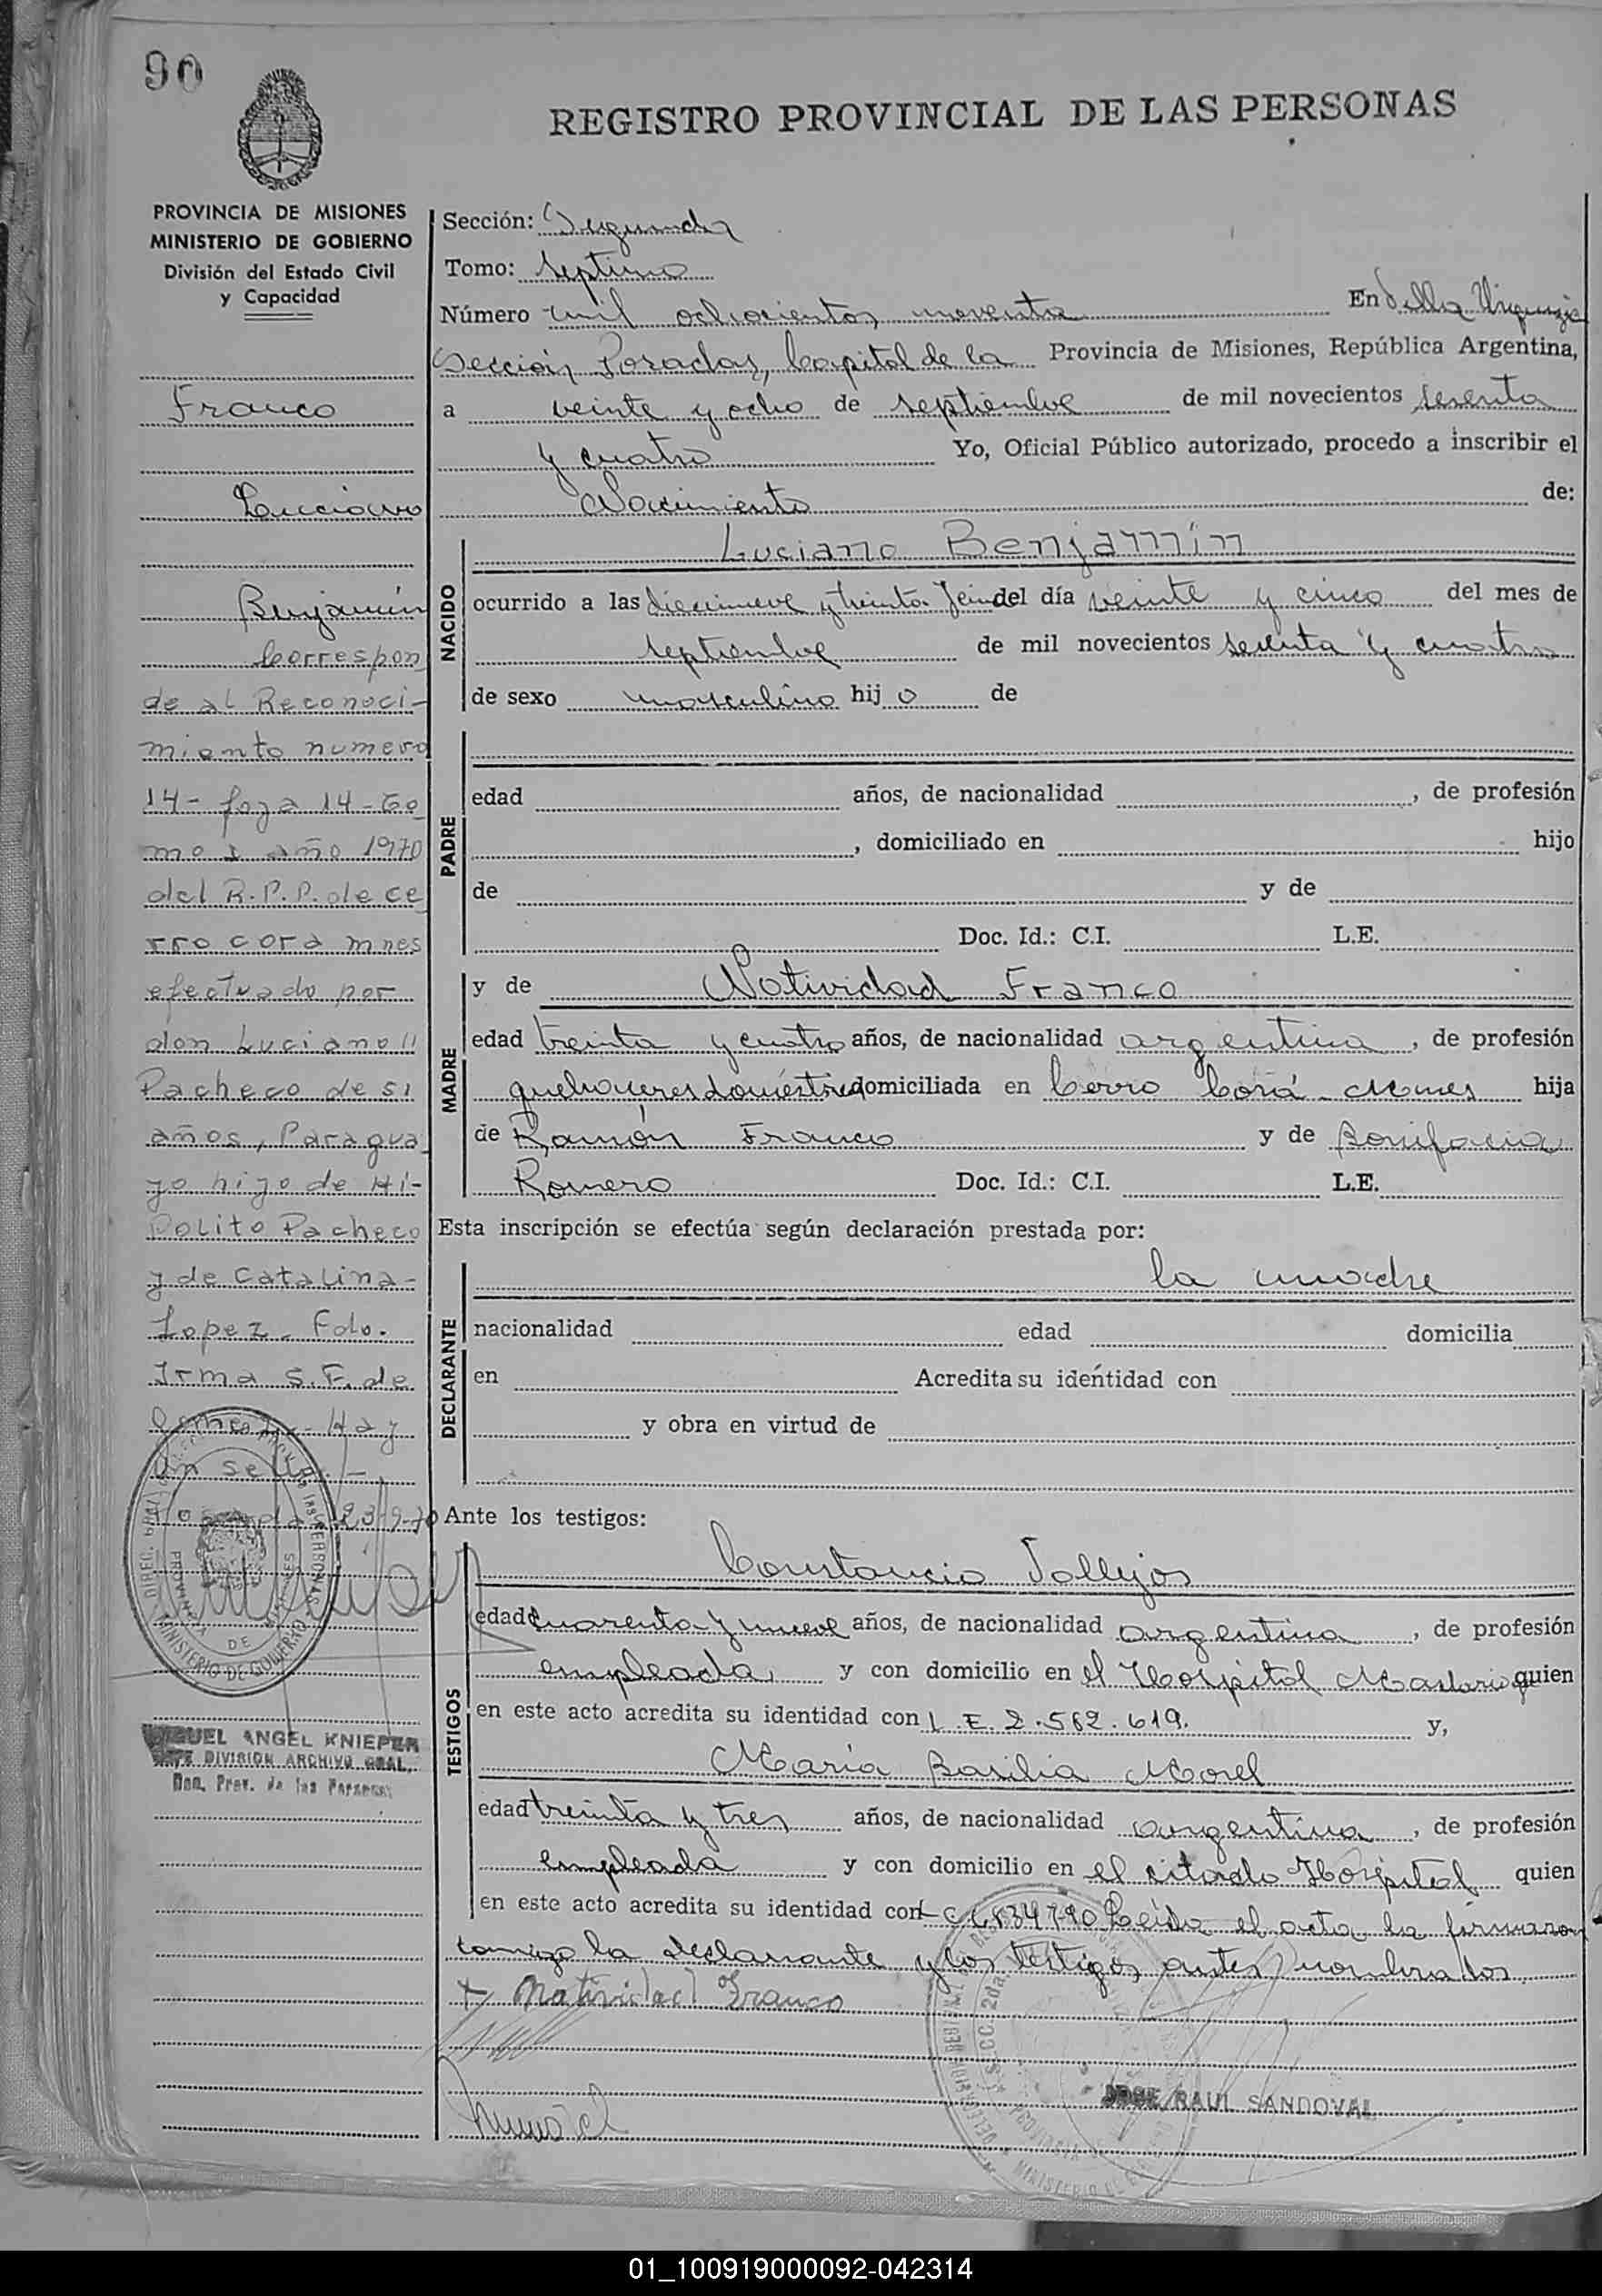 90
REGISTRO PROVINCIAL DE LAS PERSONAS
PROVINCIA DE MISIONES
MINISTERIO DE GOBIERNO
División del Estado Civil
y Capacidad
Franco
Luciano
Benjamín
Correspon
de al Reconoci-
miento numero
14- foja 14- to
mo 1 año 1970
del R.P.P. de ce
rro cora mnes
efectuado por
don Luciano
Pacheco de 51
años, Paragua
yo hijo de Hi-
polito Pacheco
y de Catalina-
Lopez. Fdo.
Irma S.F. de
Hay
un sello.-
23-9-70
MIGUEL ANGEL KNIEPER
JEFE DIVISION ARCHIVO GRAL.
Prov. de las Personas
Sección: Segunda
Tomo: septimo
Número mil ochocientos noventa En Villa Urquiza
Sección Posadas, Capital de la Provincia de Misiones, República Argentina,
a veinte y ocho de septiembre de mil novecientos sesenta
y cuatro Yo, Oficial Público autorizado, procedo a inscribir el
Nacimiento de:
NACIDO
Luciano Benjamín
ocurrido a las diecinueve y treinta del día veinte y cinco del mes de
septiembre de mil novecientos sesenta y cuatro
de sexo masculino hij o de
PADRE
edad años, de nacionalidad , de profesión
, domiciliado en hijo
de y de
Doc. Id.: C.I. L.E.
MADRE
y de Natividad Franco
edad treinta y cuatro años, de nacionalidad argentina , de profesión
quehaceres domésticos domiciliada en Cerro Corá - Mnes hija
de Ramón Franco y de Bonifacia
Romero Doc. Id.: C.I. L.E.
Esta inscripción se efectúa según declaración prestada por:
DECLARANTE
la madre
nacionalidad edad domicilia
en Acredita su identidad con
y obra en virtud de
Ante los testigos:
TESTIGOS
Constancia Vallejos
edad cuarenta y nueve años, de nacionalidad argentina , de profesión
empleada y con domicilio en el Hospital Madariaga quien
en este acto acredita su identidad con L.E. 2.562.619. y,
María Basilia Morel
edad treinta y tres años, de nacionalidad argentina , de profesión
empleada y con domicilio en el citado Hospital quien
en este acto acredita su identidad con Leída el acta la firmaron
conmigo la declarante y los testigos antes nombrados
+ Natividad Franco
JOSE RAUL SANDOVAL
01_100919000092-042314